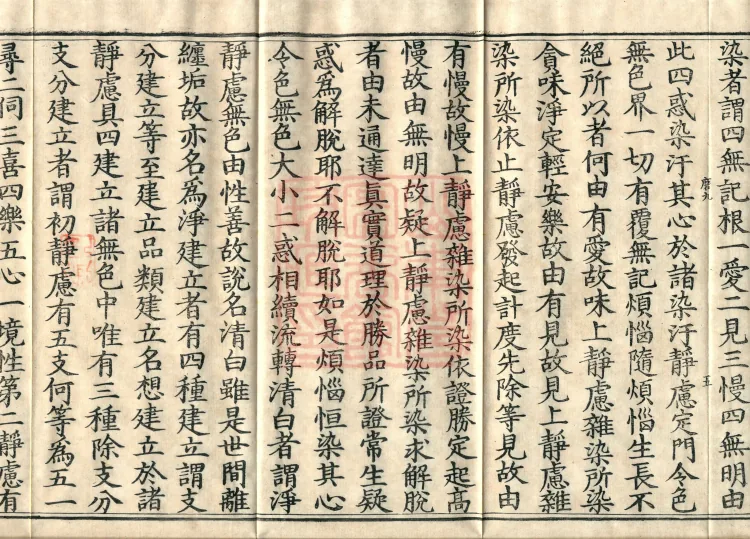 染者謂四無記根一愛二見三慢四無明由
此四惑染汙其心於諸染汙靜慮定門令色
無色界一切有覆無記煩惱隨煩惱生長不
絕所以者何由有愛故味上靜慮雜染所染
貪味淨定輕安樂故由有見故見上靜慮雜
染所染依止靜慮發起計度先除等見故由
有慢故慢上靜慮雜染所染依證勝定起高
慢故由無明故疑上靜慮雜染所染求解脫
者由未通達真實道理於勝品所證常生疑
惑為解脫耶不解脫耶如是煩惱恒染其心
令色無色大小二惑相續流轉清白者謂淨
靜慮無色由性善故說名清白雖是世間離
纏垢故亦名為淨建立者有四種建立謂支
分建立等至建立品類建立名想建立於諸
靜慮具四建立諸無色中唯有三種除支分
支分建立者謂初靜慮有五支何等為五一
尋二伺三喜四樂五心一境性第二靜慮有